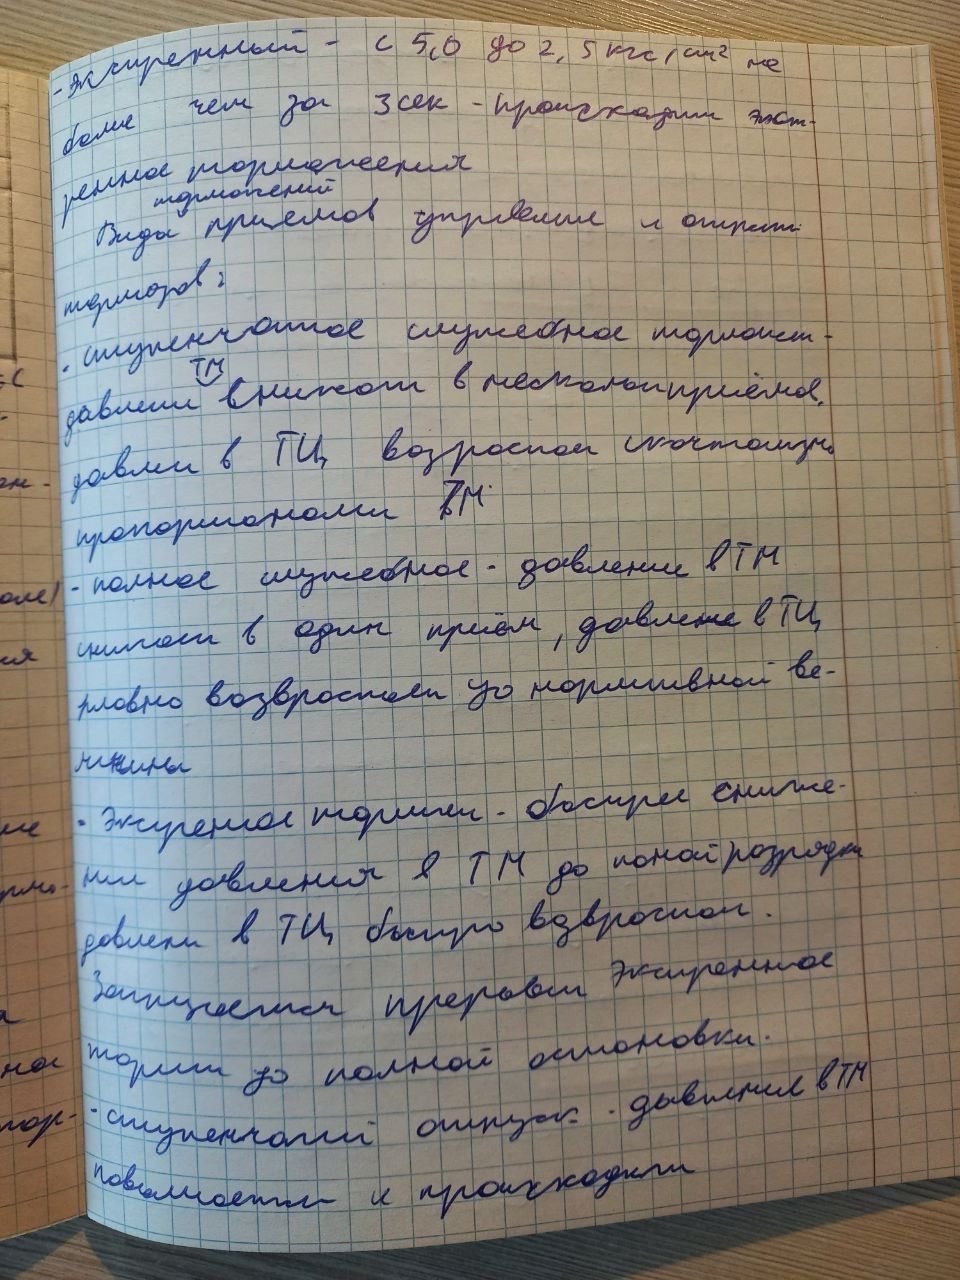 - Экстренный - с 5,0 до 2,5 кгс/см² не
более чем за 3 сек - происходит экст-
ренное торможения
торможений
Виды приёмов управление и отпуст
тормозов:
- ступенчатое служебное торможен-
ТМ
давлени снижают в несколько приёмов,
давлен в ТЦ возрастает скачкообразно
пропорционально ТМ.
- полное служебное - давление в ТМ
снижают в один приём, давление в ТЦ
ровно возврастает до нормативной ве-
личины
- Экстренное тормжен - быстрое сниже-
нии давления в ТМ до полной разрядки
давлени в ТЦ быстро возврастает.
Запрещается прерыват Экстренное
тормож до полной остановки.
- ступенчатый отпуск - давления в ТМ
повышается и происходит
ное
тор-